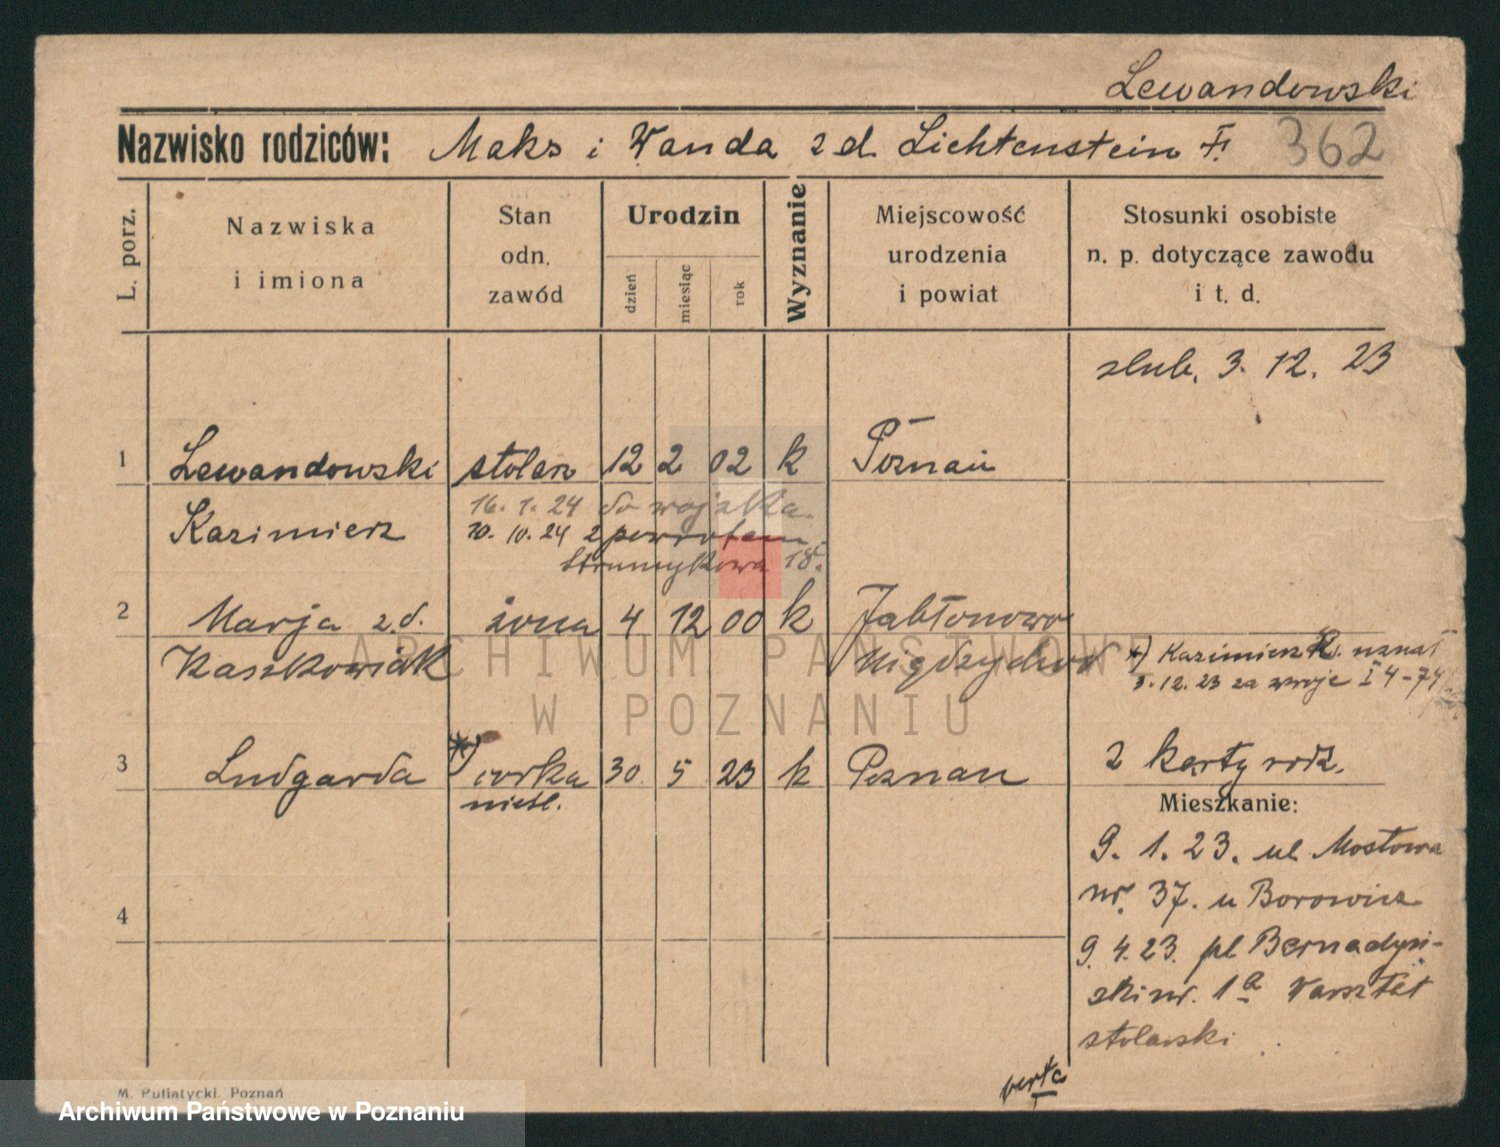 Lewandowski
Nazwisko rodziców: Maks i Wanda z d. Lichtenstein
362
L. porz.
Nazwiska
i imiona
Stan
odn.
zawód
Urodzin
dzień
miesiąc
rok
Wyznanie
Miejscowość
urodzenia
i powiat
Stosunki osobiste
n. p. dotyczące zawodu
i t. d.
ślub. 3. 12. 23
1 Lewandowski stolarz 12 2 02 k Poznań
Kazimierz
16. 1. 24 do wojska.
10. 10. 24 z powrotem
Strumykowa 18.
2 Marja z d. żona 4 12 00 k Jabłonowo
Kaszkowiak Międzychód
*) Kazimierz L. uznał
3. 12. 23 za swoje I 4-74
3 Ludgarda *) córka 30. 5 23 k Poznań
nieśl.
2 karty rodz.
Mieszkanie:
9. 1. 23. ul Mostowa
nr. 37. u Borowicz
9. 4. 23. pl Bernadyń-
ski nr. 1a Warsztat
stolarski
4
verte
M. Putiatycki, Poznań
ARCHIWUM PAŃSTWOWE
W POZNANIU
Archiwum Państwowe w Poznaniu